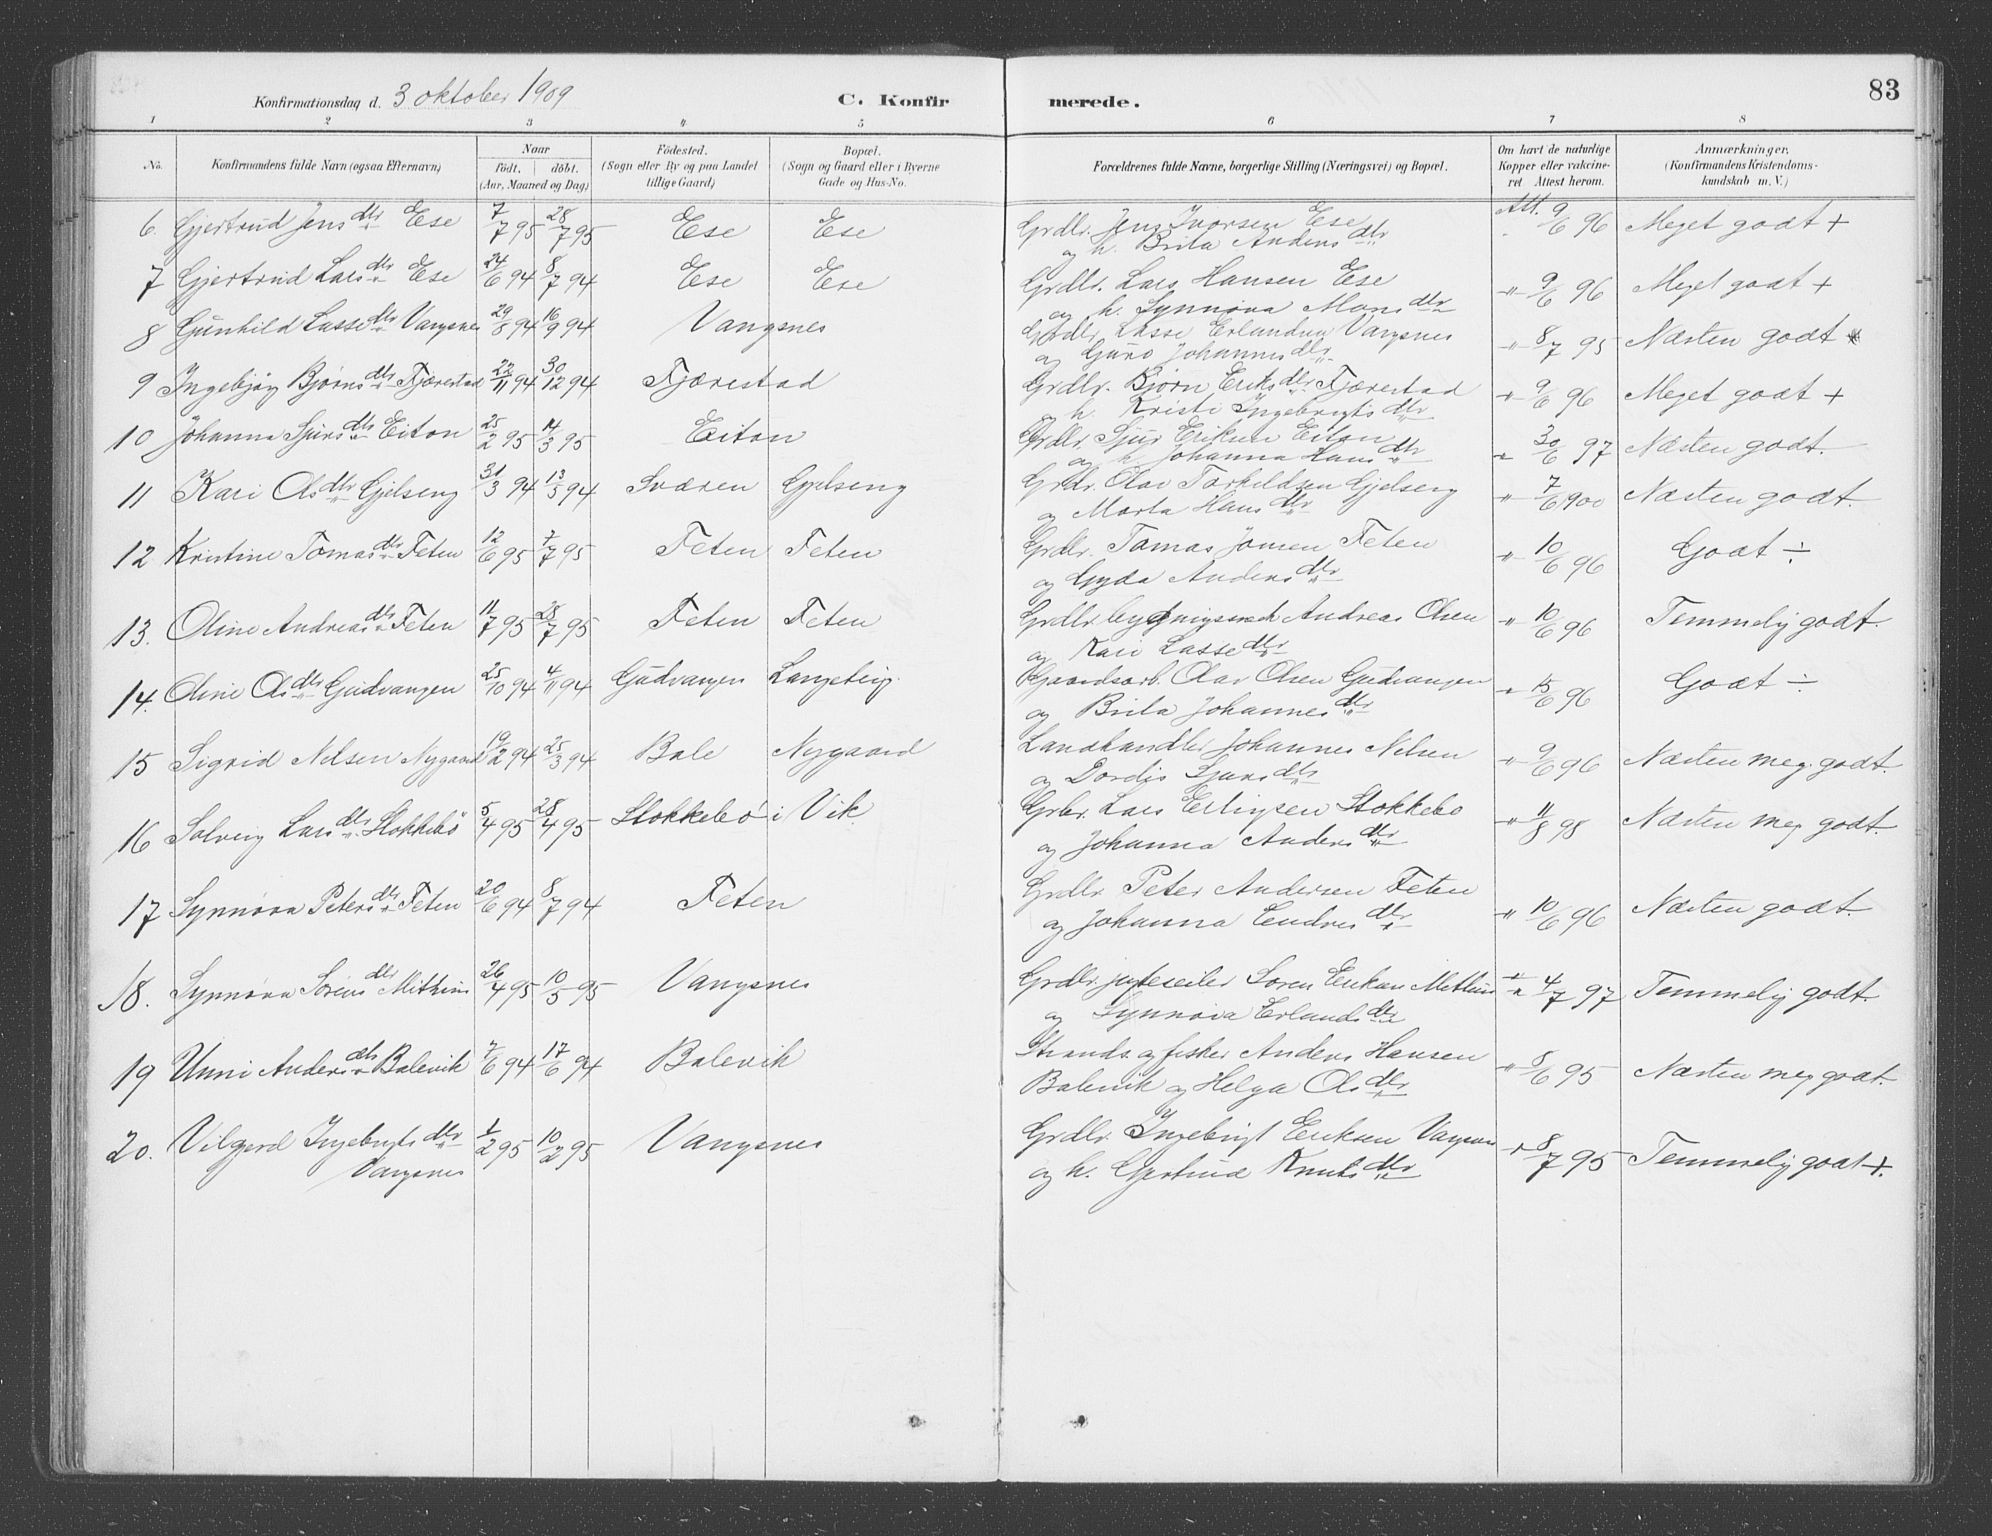 Konfirmationsdag d. 3 oktober 1909 C. Konfirmerede. 83
1 2 3 4 5 6 7 8
No. Konfirmandens fulde Navn (ogsaa Efternavn) Naar født, døbt. (Aar, Maaned og Dag) Fødested. (Sogn eller By og paa Landet tillige Gaard) Bopæl. (Sogn og Gaard eller i Byerne Gade og Hus-No. Forældrenes fulde Navne, borgerlige Stilling (Næringsvei) og Bopæl. Om havt de naturlige Kopper eller vakcineret. Attest herom. Anmærkninger. (Konfirmandens Kristendomskundskab m. V.)
6. Gjertrud Jensdtr Ese 7/7 95 28/7 95 Ese Ese Grdbr. Jens Ivarsen Ese Att. 9/6 96 Meget godt +
og h. Brita Andersdtr
7 Gjertrud Larsdtr Ese 24/6 94 8/7 94 Ese Ese Grdbr. Lars Hansen Ese " 9/6 96 Meget godt +
og h. Synnøva Monsdtr
8 Gunhild Lassedtr Vangsnes 29/8 94 16/9 94 Vangsnes Grdbr. Lasse Erlandsen Vangsnes " 8/7 95 Næsten godt
og Guro Johannesdtr
9 Ingebjørg Bjørnsdtr Tjærestad 22/11 94 30/12 94 Tjærestad Grdbr. Bjørn Eriksdtr Tjærestad " 9/6 96 Meget godt +
og h. Kristi Ingebrigtsdtr
10 Johanna Sjursdtr Eiton 25/2 95 14/3 95 Eiton Grdbr. Sjur Eriksen Eiton " 30/6 97 Næsten godt.
og h. Johanna Hansdtr
11 Kari Olsdtr Gjelseng 31/3 94 13/5 94 Sværen Gjelseng Grdr. Olav Torkildsen Gjelseng " 7/6 900 Næsten godt.
og Marta Hansdtr
12 Kristine Tomasdtr Feten 12/6 95 7/7 95 Feten Feten Grdbr. Tomas Jonsen Feten " 10/6 96 Godt ÷
og Gyda Andersdtr
13. Oline Andreasdtr Feten 11/7 95 28/7 95 Feten Feten Grdbr. Andreas Olsen " 10/6 96 Temmelig godt.
og Kari Lassedtr
14. Oline Olsdtr Gudvangen 25/10 94 4/11 94 Gudvangen Langeteig. Gaardsarb. Olav Olsen Gudvangen " 15/6 96 Godt ÷
og Brita Johannesdtr
15 Sigrid Nelsen Nygaard 19/2 94 25/3 94 Bale Nygaard Landhandler Johannes Nelsen " 9/6 96 Næsten meg. godt.
og Dordis Sjursdtr
16 Solveig Larsdtr Stokkebø 5/4 95 28/4 95 Stokkebø i Vik Grbr. Lars Erlingsen Stokkebø " 11/8 98 Næsten meg godt.
og Johanna Andersdtr
17 Synnøva Petersdtr Feten 20/6 94 8/7 94 Feten Grdbr. Peter Andersen Feten " 10/6 96 Næsten godt.
og Johanna Endresdtr
18. Synnøva Sørensdtr Mithun 26/4 95 10/5 95 Vangsnes Grdbr. jagteseiler Søren Eriksen Methun " 4/7 97 Temmelig godt.
og Synnøva Erlandsdtr
19 Unni Andersdtr Balevik 7/6 94 17/6 94 Balevik Strands. og fisker Anders Hansen " 8/6 95 Næsten meg godt.
Balevik og Helga Olsdtr
20. Vilgerd Ingebrigtsdtr 1/2 95 10/2 95 Vangsnes Grdbr. Ingebrigt Eriksen Vangsnes " 8/7 95 Temmelig godt +.
Vangsnes og h. Gjertrud Knutsdtr